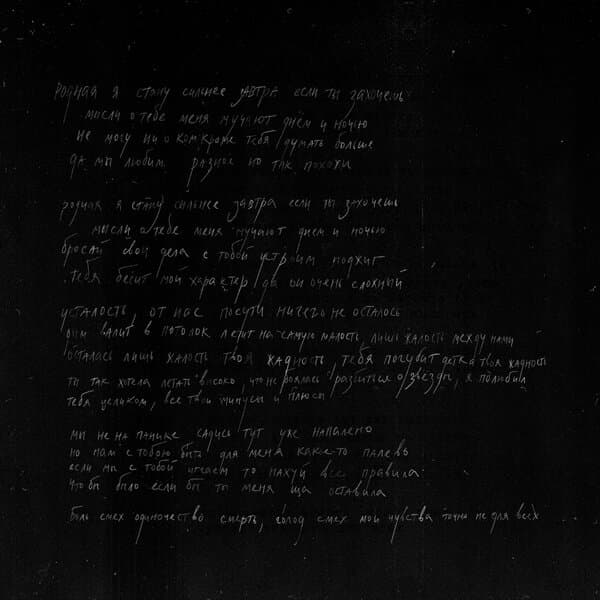 родная я стану сильнее завтра если ты захочешь
мысли о тебе меня мучают днём и ночью
не могу ни о ком кроме тебя думать больше
да мы любим разное но так похожи
родная я стану сильнее завтра если ты захочешь
мысли о тебе меня мучают днем и ночью
бросай свои дела с тобой устроим поджиг
тебя бесит мой характер да он очень сложный
усталость, от нас почти ничего не осталось
дым валит в потолок летит на самую малость, лишь жалость между нами
осталась лишь жалость твоя жадность, тебя погубит детка твоя жадность
ты так хотела летать высоко, что не боялась разбиться о звёзды, я полюбил
тебя целиком, все твои минусы и плюсы
мы не на панике садись тут уже напалено
но нам с тобою быть для меня как-то палево
если мы с тобой играем то нахуй все правила
что бы было если бы ты меня ща оставила
боль смех одиночество смерть, голод смех мои чувства точно не для всех